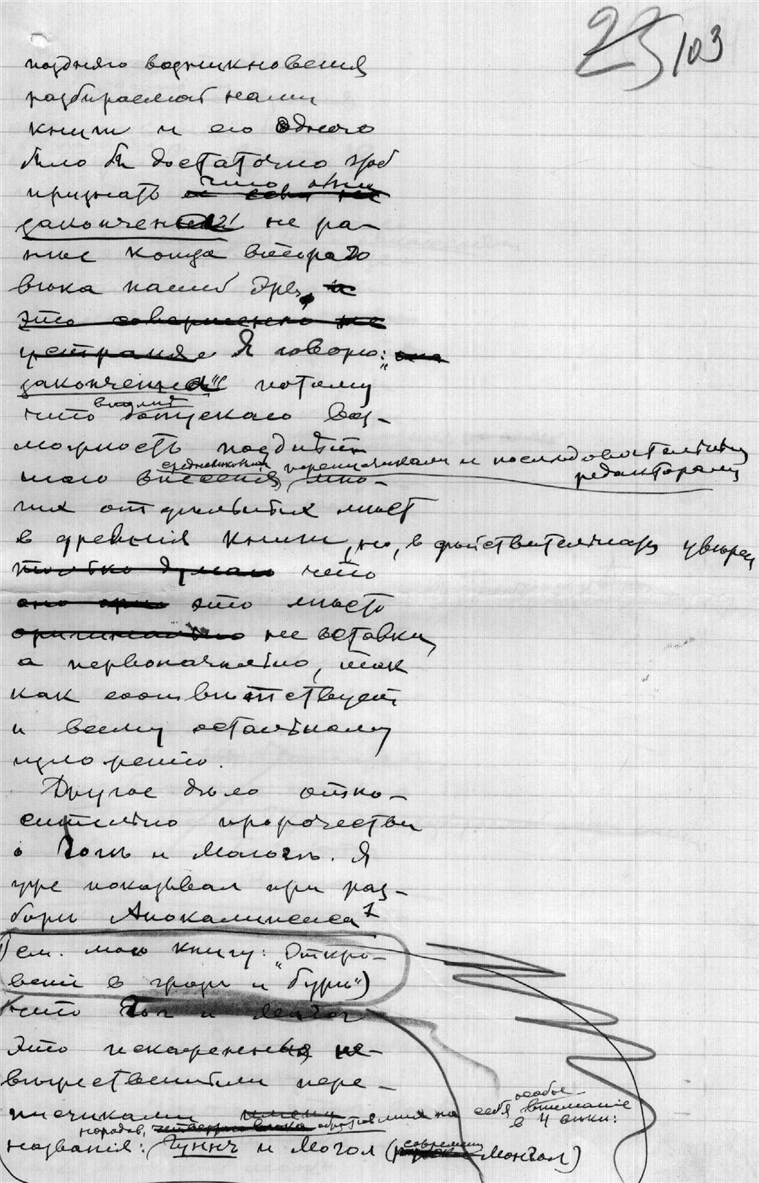 23/103
поздняго возникновения
разбираемой нами
книги и его одного
было бы достаточно чтоб
признать что она
законченна не ра-
нее конца второго
века нашей эры,
это совершенно не
устраняе Я говорю:
„законченна“ потому
что вполне допускаю воз-
можность позднѣй-
шаго внесения средневековыми переписчиками и последовательными редакторами мно-
гих отдельных мест
в древния книги, но, в действительности уверен
только думаю что
это место
оригинально не вставка,
а первоначально, так
как соответствует
и всему остальному
изложению.
Другое дело относ-
ительно пророчества
о Гоге и Магоге. Я
уже показывал при раз-
боре Апокалипсиса
(см. мою книгу: „Откро-
венiе в грозе и буре“)
что Гог и Магог
это искаженныя не-
вежественными пере-
писчиками имени
народов, обративших на себя особое вниманiе в 4 веке:
названiя: Гунн и Могол (современн Монгол)